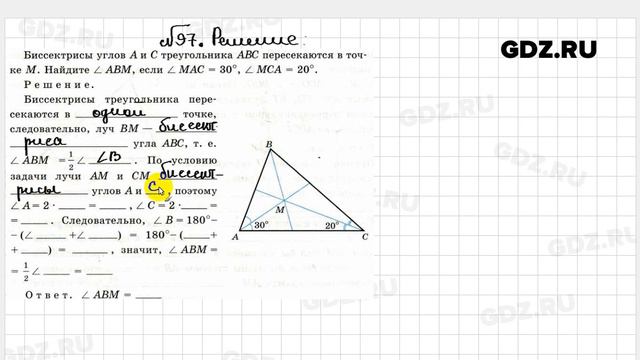 №97. Решение:
GDZ.RU
Биссектрисы углов A и C треугольника ABC пересекаются в точ-
ке M. Найдите ∠ ABM, если ∠ MAC = 30°, ∠ MCA = 20°.
Решение.
Биссектрисы треугольника пере-
секаются в одной точке,
следовательно, луч BM — биссект-
риса угла ABC, т. е.
∠ ABM = 1/2 ∠ ∠B . По условию
задачи лучи AM и CM биссект-
рисы углов A и C, поэтому
∠ A = 2 · ____ = ____, ∠ C = 2 · ____ =
= ____. Следовательно, ∠ B = 180° –
– (∠ ____ + ∠ ____) = 180° – (____ +
+ ____) = ____, значит, ∠ ABM =
= 1/2 ∠ ____ = ____
Ответ. ∠ ABM = ____
B
M
A 30° 20° C
GDZ.RU
GDZ.RU
GDZ.RU
GDZ.RU
GDZ.RU